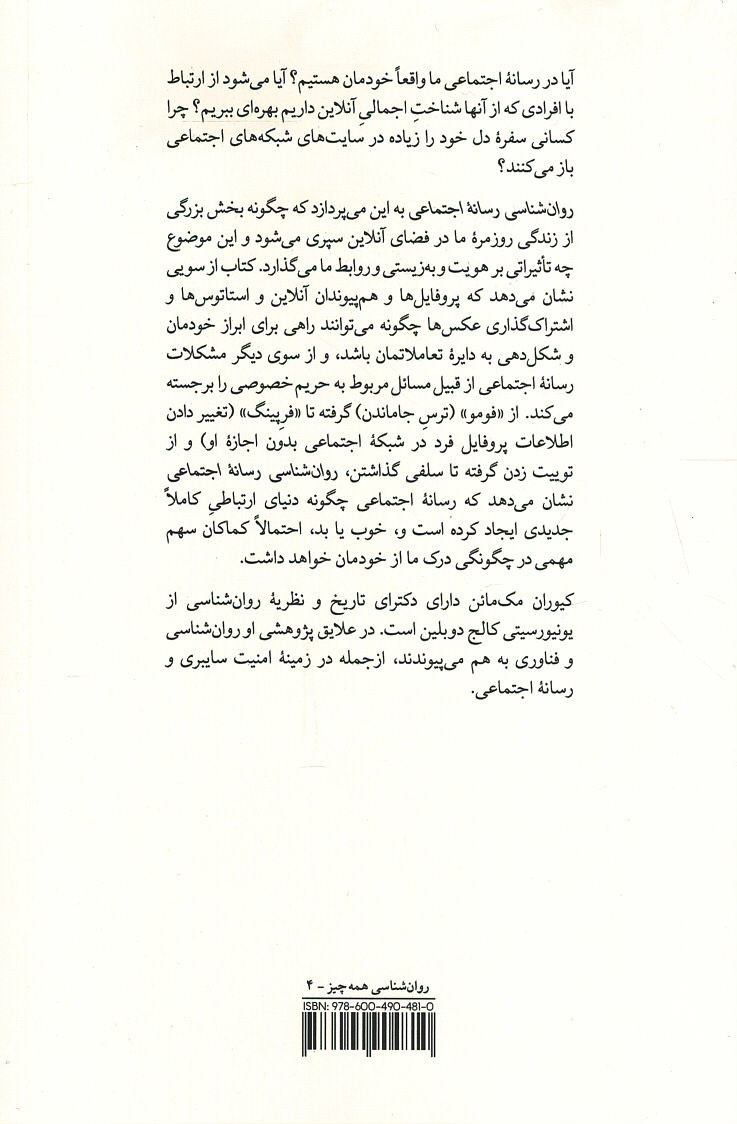 آیا در رسانهٔ اجتماعی ما واقعاً خودمان هستیم؟ آیا می‌شود از ارتباط
با افرادی که از آنها شناختِ اجمالیِ آنلاین داریم بهره‌ای ببریم؟ چرا
کسانی سفرهٔ دل خود را زیاده در سایت‌های شبکه‌های اجتماعی
باز می‌کنند؟
روان‌شناسی رسانهٔ اجتماعی به این می‌پردازد که چگونه بخش بزرگی
از زندگی روزمرهٔ ما در فضای آنلاین سپری می‌شود و این موضوع
چه تأثیراتی بر هویت و به‌زیستی و روابط ما می‌گذارد. کتاب از سویی
نشان می‌دهد که پروفایل‌ها و هم‌پیوندان آنلاین و استاتوس‌ها و
اشتراک‌گذاری عکس‌ها چگونه می‌توانند راهی برای ابراز خودمان
و شکل‌دهی به دایرهٔ تعاملاتمان باشد، و از سوی دیگر مشکلات
رسانهٔ اجتماعی از قبیل مسائل مربوط به حریم خصوصی را برجسته
می‌کند. از «فومو» (ترسِ جاماندن) گرفته تا «فرِیپنگ» (تغییر دادن
اطلاعات پروفایل فرد در شبکهٔ اجتماعی بدون اجازهٔ او) و از
توییت زدن گرفته تا سلفی گذاشتن، روان‌شناسی رسانهٔ اجتماعی
نشان می‌دهد که رسانهٔ اجتماعی چگونه دنیای ارتباطیِ کاملاً
جدیدی ایجاد کرده است و، خوب یا بد، احتمالاً کماکان سهم
مهمی در چگونگی درک ما از خودمان خواهد داشت.
کیوران مک‌مائن دارای دکترای تاریخ و نظریهٔ روان‌شناسی از
یونیورسیتی کالج دوبلین است. در علایق پژوهشی او روان‌شناسی
و فناوری به هم می‌پیوندند، ازجمله در زمینهٔ امنیت سایبری و
رسانهٔ اجتماعی.
روان‌شناسی همه‌چیز - ۴
ISBN: 978-600-490-481-0